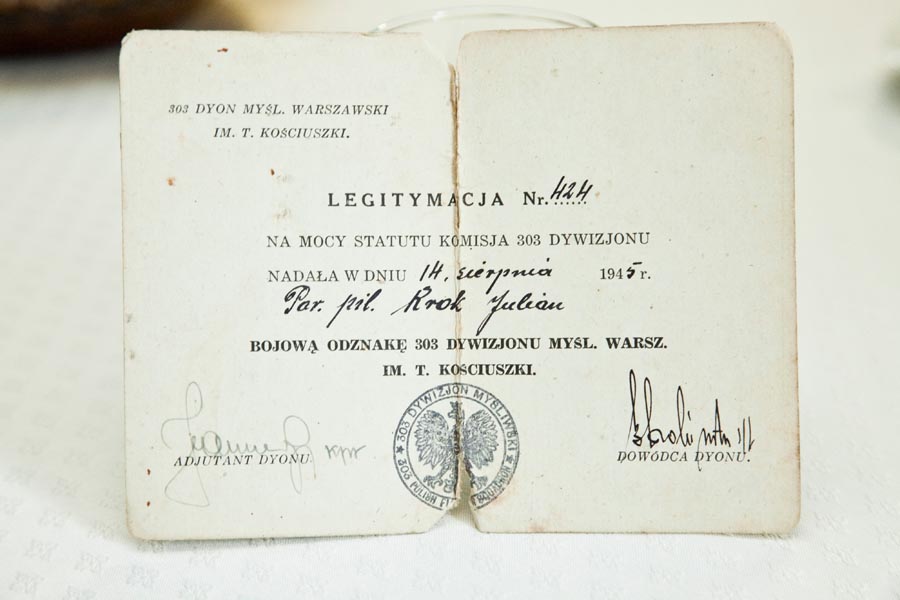 303 DYON MYŚL. WARSZAWSKI
IM. T. KOŚCIUSZKI.
LEGITYMACJA Nr. 424
NA MOCY STATUTU KOMISJA 303 DYWIZJONU
NADAŁA W DNIU 14, sierpnia 1945 r.
Por. pil. Krok Julian
BOJOWĄ ODZNAKĘ 303 DYWIZJONU MYŚL. WARSZ.
IM. T. KOŚCIUSZKI.
* 303 DYWIZJON MYŚLIWSKI *
303 POLISH SQUADRON
kpr
ADJUTANT DYONU.
DOWÓDCA DYONU.